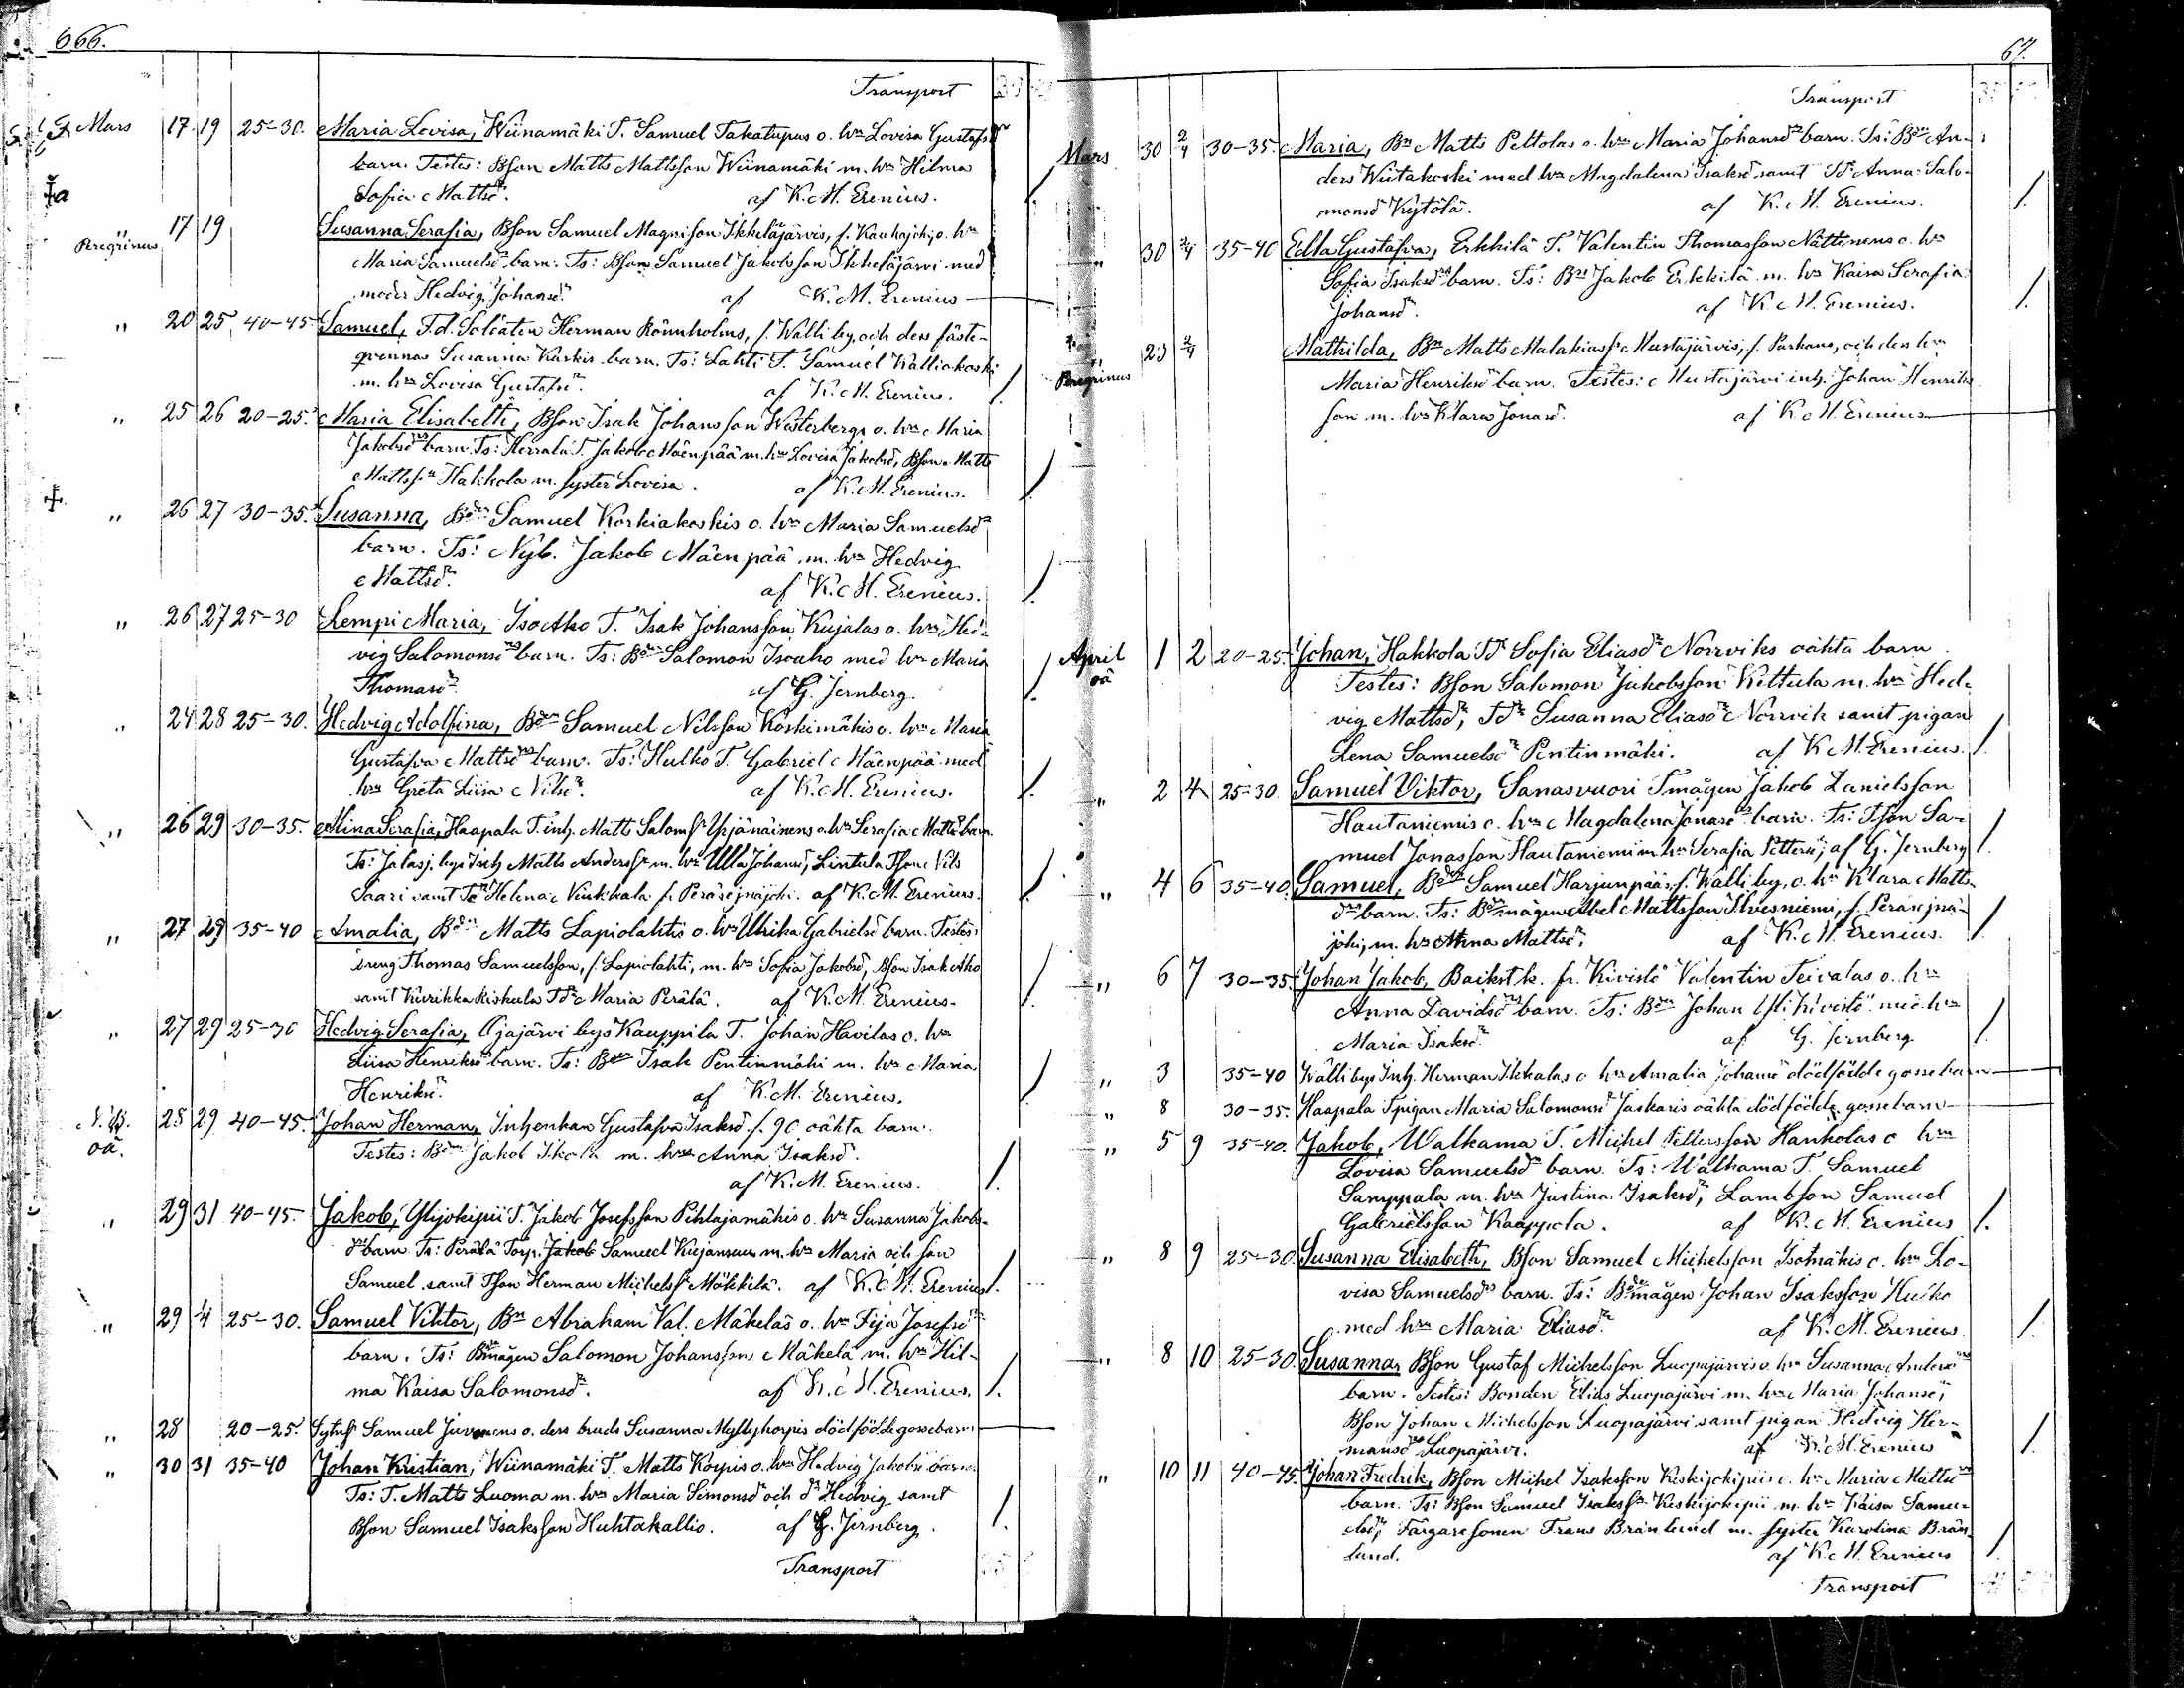 666.
Transport
Mars 17 19 25-30. Maria Lovisa, Wiinamäki T. Samuel Takatupas o. hu Lovisa Gustafsdr
barn. Testes: Bson Matts Mattsson Wiinamäki m. hu Hilma
Sofia Mattsdr. af K. M. Erenius.
" 17 19 Susanna Serafia, Bson Samuel Magnison Ikkeläjärvis, f. Kauhajoki, o. hu
Peregrinus
Maria Samuelsdrs barn. Ts: Bson Samuel Jakobsson Ikkeläjärvi med
moder Hedvig Johansdr. af K. M. Erenius
" 20 25 40-45 Samuel, F.d. Soldaten Herman Rönnholms, f. Walli by, och dess fäste-
qvinnas Susanna Kaskis barn. Ts: Lahti T. Samuel Kalliokoski
m. hu Lovisa Gustafsdr. af K. M. Erenius.
" 25 26 20-25. Maria Elisabeth, Bson Isak Johansson Westerbergs o. hu Maria
Jakobsdrs barn. Ts: Herrala T. Jakob Mäenpää m. hu Lovisa Jakobsdr, Bson Matts
Mattsson Hakkola m. syster Lovisa. af K. M. Erenius.
" 26 27 30-35. Susanna, Bden Samuel Korkiakoskis o. hu Maria Samuelsdrs
barn. Ts: Nyb. Jakob Mäenpää m. hu Hedvig
Mattsdr. af K. M. Erenius.
" 26 27 25-30 Lempi Maria, Iso Aho T. Isak Johansson Kujalas o. hu Hed-
vig Salomonsdrs barn. Ts: Bden Salomon Isoaho med hu Maria
Thomasdr. af G. Jernberg.
" 24 28 25-30. Hedvig Adolfina, Bden Samuel Nilsson Koskimäkis o. hu Maria
Gustafva Mattsdrs barn. Ts: Hulko T. Gabriel Mäenpää med
hu Greta Liisa Nilsdr. af K. M. Erenius.
" 26 29 30-35. Mina Serafia, Haapala T. inh. Matts Salomsn Yrjänäinens o. hu Serafia Mattsdrs barn.
Ts: Jalasj. bys Inh Matts Anderssn m. hu Ulla Johansdr, Lintula Tson Nils
Saari samt Tdr Helena Vinkkala f. Peräseinäjoki. af K. M. Erenius.
" 27 29 35-40 Amalia, Bden Matts Lapiolahtis o. hu Ulrika Gabrielsdrs barn. Testes:
dreng Thomas Samuelsson, f. Lapiolahti, m. hu Sofia Jakobsdr, Bson Isak Aho
samt Kurikka Riskula Tdr Maria Perälä. af K. M. Erenius.
" 27 29 25-30 Hedvig Serafia, Ojajärvi bys Kauppila T. Johan Havilas o. hu
Eliisa Henriksdrs barn. Ts: Bden Isak Pentinmäki m. hu Maria
Henriksdr. af K. M. Erenius.
oä. 28 29 40-45. Johan Herman, Inhenkan Gustafva Isaksdr f. 90 oäkta barn.
Testes: Bden Jakob Ikola m. hu Anna Isaksdr.
af K. M. Erenius.
" 29 31 40-45. Jakob, Ylijokipii T. Jakob Josefsson Pihlajamäkis o. hu Susanna Jakobs-
drs barn. Ts: Perälä Torp. Jakob Samuel Kujansuu m. hu Maria och son
Samuel samt Tson Herman Michelssn Mökkilä. af K. M. Erenius.
" 29 4 25-30. Samuel Viktor, Bn Abraham Val. Mäkeläs o. hu Fija Josefsdrs
barn. Ts: Bmågen Salomon Johansson Mäkelä m. hu Hil-
ma Kaisa Salomonsdr. af K. M. Erenius.
" 28 20-25. Sytnf Samuel Juvonens o. dess bruds Susanna Myllykorpis dödfödde gossebarn
" 30 31 35-40 Johan Kristian, Wiinamäki T. Matts Korpis o. hu Hedvig Jakobsdrs barn.
Ts: T. Matts Luoma m. hu Maria Simonsdr och dr Hedvig samt
Bson Samuel Isaksson Huhtakallio. af G. Jernberg.
Transport
67.
Transport
Mars 30 2/4 30-35 Maria, Bn Matts Peltolas o. hu Maria Johansdrs barn. Ts: Bden An-
ders Wiitakoski med hu Magdalena Isaksdr samt Tdr Anna Salo-
monsdr Kytölä. af K. M. Erenius.
" 30 2/4 35-40 Edla Gustafva, Erkkilä T. Valentin Thomasson Nättinens o. hu
Sofia Isaksdrs barn. Ts: Bn Jakob Erkkilä m. hu Kaisa Serafia
Johansdr. af K. M. Erenius.
" 23 2/4 Mathilda, Bn Matts Malakiassn Mustajärvis, f. Parkano, och dess hu
Peregrinus
Maria Henriksdrs barn. Testes: Mustajärvi inh. Johan Henriks-
son m. hu Klara Jonasdr. af K. M. Erenius
April 1 2 20-25. Johan, Hakkola Tdr Sofia Eliasdr Norrviks oäkta barn
oä
Testes: Bson Salomon Jakobsson Kettula m. hu Hed-
vig Mattsdr, Tdr Susanna Eliasdr Norrvik samt pigan
Lena Samuelsdr Pentinmäki. af K. M. Erenius.
" 2 4 25-30. Samuel Viktor, Sanasvuori Tmågen Jakob Danielsson
Hautaniemis o. hu Magdalena Jonasdrs barn. Ts: Tson Sa-
muel Jonasson Hautaniemi m. hu Serafia Pettersdr; af G. Jernberg
" 4 6 35-40. Samuel, Bden Samuel Harjunpääs, f. Walli by, o. hu Klara Matts-
drs barn. Ts: Bdemågen Abel Mattsson Ilvesniemi, f. Peräseinä-
joki, m. hu Anna Mattsdr. af K. M. Erenius.
" 6 7 30-35. Johan Jakob, Backst k. fr. Kivistö Valentin Teivalas o. hu
Anna Davidsdrs barn. Ts: Bden Johan Yli Kivistö med hu
Maria Isaksdr. af G. Jernberg
" 3 35-40 Walli bys Inh. Herman Ikkalas o hu Amalia Johansdrs dödfödde gossebarn
" 8 30-35. Haapala Tpigan Maria Salomonsdr Jaskaris oäkta dödfödde gossebarn
" 5 9 35-40. Jakob, Walkama T. Michel Pettersson Hankolas o hu
Lovisa Samuelsdrs barn. Ts: Walkama T. Samuel
Samppala m. hu Justina Isaksdr, Lambson Samuel
Gabrielsson Kaappola. af K. M. Erenius
" 8 9 25-30. Susanna Elisabeth, Bson Samuel Michelsson Isotmäkis o. hu Lo-
visa Samuelsdrs barn. Ts: Bdemågen Johan Isaksson Hulko
med hu Maria Eliasdr. af K. M. Erenius.
" 8 10 25-30. Susanna, Bson Gustaf Michelsson Luopajärvis o. hu Susanna Andersdrs
barn. Testes: Bonden Elias Luopajärvi m. hu Maria Johansdr,
Bson Johan Michelsson Luopajärvi samt pigan Hedvig Her-
mansdr Luopajärvi. af K. M. Erenius
" 10 11 40-45. Johan Fredrik, Bson Michel Isaksson Keskijokipiis o. hu Maria Mattsdrs
barn. Ts: Bson Samuel Isakssn Keskijokipii m. hu Kaisa Samu-
elsdr, Färgaresonen Frans Brånlund m. syster Karolina Brån-
lund. af K. M. Erenius
Transport